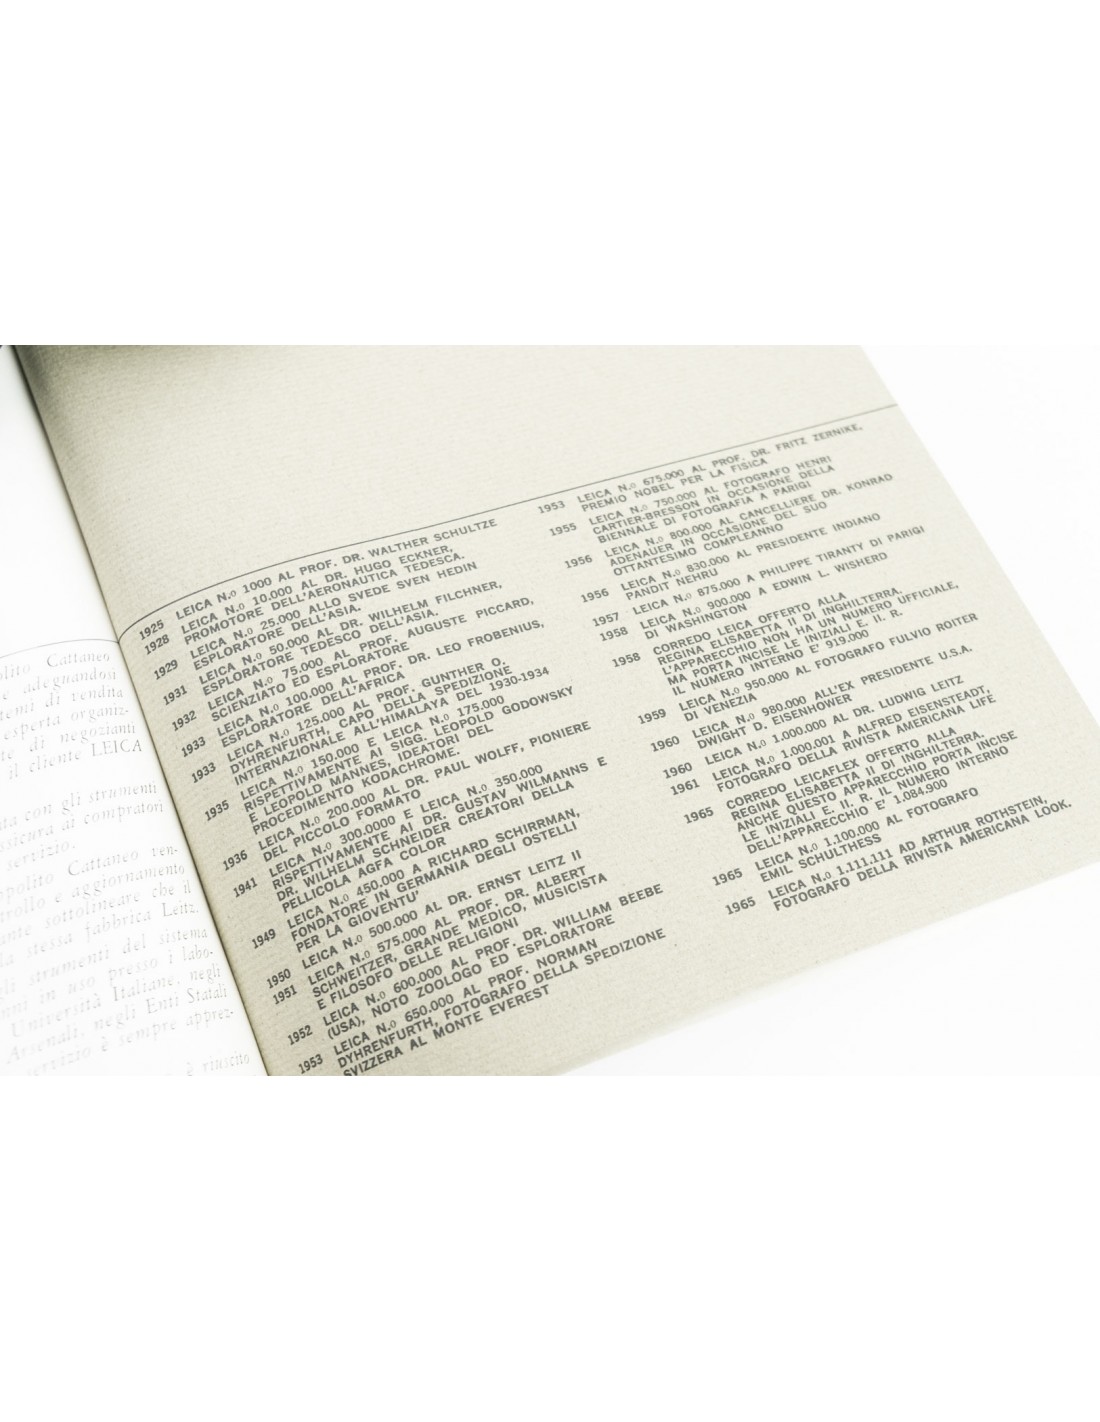 polito Cattaneo
e adeguandosi
temi di vendita
esperta organiz-
te di negozianti
il cliente LEICA
ta con gli strumenti
ssicura ai compratori
servizio.
polito Cattaneo ven-
rollo e aggiornamento
ante sottolineare che il
la stessa fabbrica Leitz.
gli strumenti del sistema
nni in uso presso i labo-
Università Italiane, negli
Arsenali, negli Enti Statali
servizio è sempre apprez-
è riuscito
1925 LEICA N.o 1000 AL PROF. DR. WALTHER SCHULTZE
1928 LEICA N.o 10.000 AL DR. HUGO ECKNER,
PROMOTORE DELL'AERONAUTICA TEDESCA.
1929 LEICA N.o 25.000 ALLO SVEDE SVEN HEDIN
ESPLORATORE DELL'ASIA.
1931 LEICA N.o 50.000 AL DR. WILHELM FILCHNER,
ESPLORATORE TEDESCO DELL'ASIA.
1932 LEICA N.o 75.000 AL PROF. AUGUSTE PICCARD,
SCIENZIATO ED ESPLORATORE
1933 LEICA N.o 100.000 AL PROF. DR. LEO FROBENIUS,
ESPLORATORE DELL'AFRICA
1933 LEICA N.o 125.000 AL PROF. GUNTHER O.
DYHRENFURTH, CAPO DELLA SPEDIZIONE
INTERNAZIONALE ALL'HIMALAYA DEL 1930-1934
1935 LEICA N.o 150.000 E LEICA N.o 175.000
RISPETTIVAMENTE AI SIGG. LEOPOLD GODOWSKY
E LEOPOLD MANNES, IDEATORI DEL
PROCEDIMENTO KODACHROME.
1936 LEICA N.o 200.000 AL DR. PAUL WOLFF, PIONIERE
DEL PICCOLO FORMATO
1941 LEICA N.o 300.0000 E LEICA N.o 350.000
RISPETTIVAMENTE AI DR. GUSTAV WILMANNS E
DR. WILHELM SCHNEIDER CREATORI DELLA
PELLICOLA AGFA COLOR
1949 LEICA N.o 450.000 A RICHARD SCHIRRMAN,
FONDATORE IN GERMANIA DEGLI OSTELLI
PER LA GIOVENTU'
1950 LEICA N.o 500.000 AL DR. ERNST LEITZ II
1951 LEICA N.o 575.000 AL PROF. DR. ALBERT
SCHWEITZER, GRANDE MEDICO, MUSICISTA
E FILOSOFO DELLE RELIGIONI
1952 LEICA N.o 600.000 AL PROF. DR. WILLIAM BEEBE
(USA), NOTO ZOOLOGO ED ESPLORATORE
1953 LEICA N.o 650.000 AL PROF. NORMAN
DYHRENFURTH, FOTOGRAFO DELLA SPEDIZIONE
SVIZZERA AL MONTE EVEREST
1953 LEICA N.o 675.000 AL PROF. DR. FRITZ ZERNIKE,
PREMIO NOBEL PER LA FISICA
1955 LEICA N.o 750.000 AL FOTOGRAFO HENRI
CARTIER-BRESSON IN OCCASIONE DELLA
BIENNALE DI FOTOGRAFIA A PARIGI
1956 LEICA N.o 800.000 AL CANCELLIERE DR. KONRAD
ADENAUER IN OCCASIONE DEL SUO
OTTANTESIMO COMPLEANNO
1956 LEICA N.o 830.000 AL PRESIDENTE INDIANO
PANDIT NEHRU
1957 LEICA N.o 875.000 A PHILIPPE TIRANTY DI PARIGI
1958 LEICA N.o 900.000 A EDWIN L. WISHERD
DI WASHINGTON
1958 CORREDO LEICA OFFERTO ALLA
REGINA ELISABETTA II DI INGHILTERRA.
L'APPARECCHIO NON HA UN NUMERO UFFICIALE,
MA PORTA INCISE LE INIZIALI E. II. R.
IL NUMERO INTERNO E' 919.000
1959 LEICA N.o 950.000 AL FOTOGRAFO FULVIO ROITER
DI VENEZIA
1960 LEICA N.o 980.000 ALL'EX PRESIDENTE U.S.A.
DWIGHT D. EISENHOWER
1960 LEICA N.o 1.000.000 AL DR. LUDWIG LEITZ
1961 LEICA N.o 1.000.001 A ALFRED EISENSTEADT,
FOTOGRAFO DELLA RIVISTA AMERICANA LIFE
1965 CORREDO LEICAFLEX OFFERTO ALLA
REGINA ELISABETTA II DI INGHILTERRA.
ANCHE QUESTO APPARECCHIO PORTA INCISE
LE INIZIALI E. II. R. IL NUMERO INTERNO
DELL'APPARECCHIO E' 1.084.900
1965 LEICA N.o 1.100.000 AL FOTOGRAFO
EMIL SCHULTHESS
1965 LEICA N.o 1.111.111 AD ARTHUR ROTHSTEIN,
FOTOGRAFO DELLA RIVISTA AMERICANA LOOK.